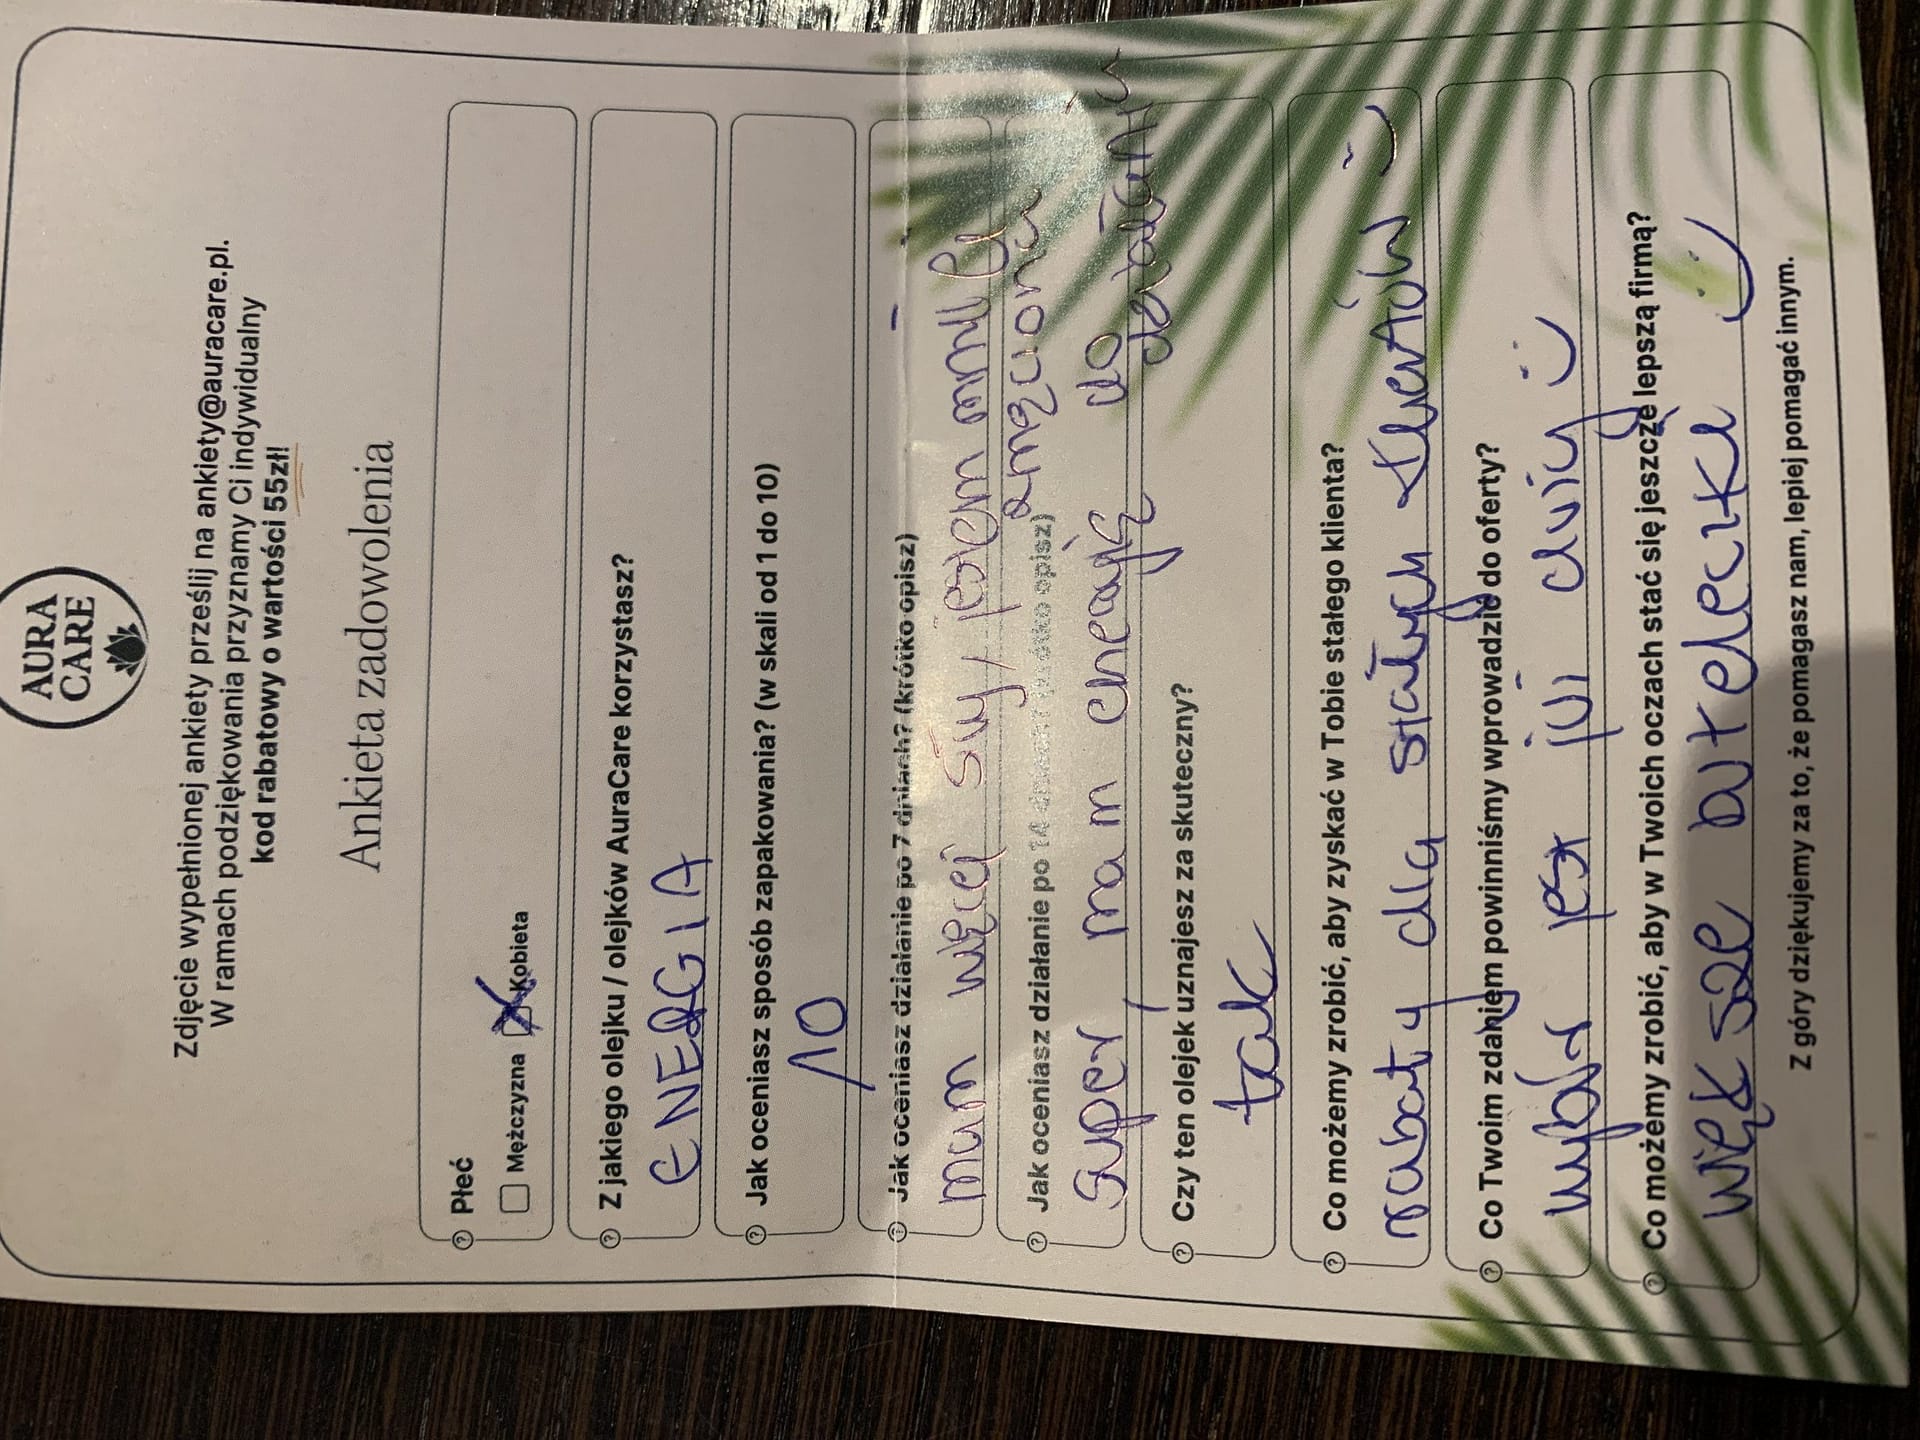 AURA
CARE
Zdjęcie wypełnionej ankiety prześlij na ankiety@auracare.pl.
W ramach podziękowania przyznamy Ci indywidualny
kod rabatowy o wartości 55zł!
Ankieta zadowolenia
Płeć
Mężczyzna Kobieta
Z jakiego olejku / olejków AuraCare korzystasz?
ENERGIA
Jak oceniasz sposób zapakowania? (w skali od 1 do 10)
10
Jak oceniasz działanie po 7 dniach? (krótko opisz)
mam więcej siły, jestem mniej
zmęczona
Jak oceniasz działanie po 14 dniach? (krótko opisz)
super, mam energię do
działania
Czy ten olejek uznajesz za skuteczny?
tak
Co możemy zrobić, aby zyskać w Tobie stałego klienta?
rabaty dla stałych klientów :)
Co Twoim zdaniem powinniśmy wprowadzić do oferty?
wybór jest już duży :)
Co możemy zrobić, aby w Twoich oczach stać się jeszcze lepszą firmą?
większe buteleczki :)
Z góry dziękujemy za to, że pomagasz nam, lepiej pomagać innym.